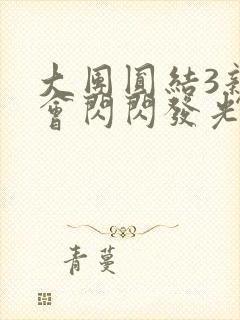 大團圓結3新
會閃閃發光
青蔓